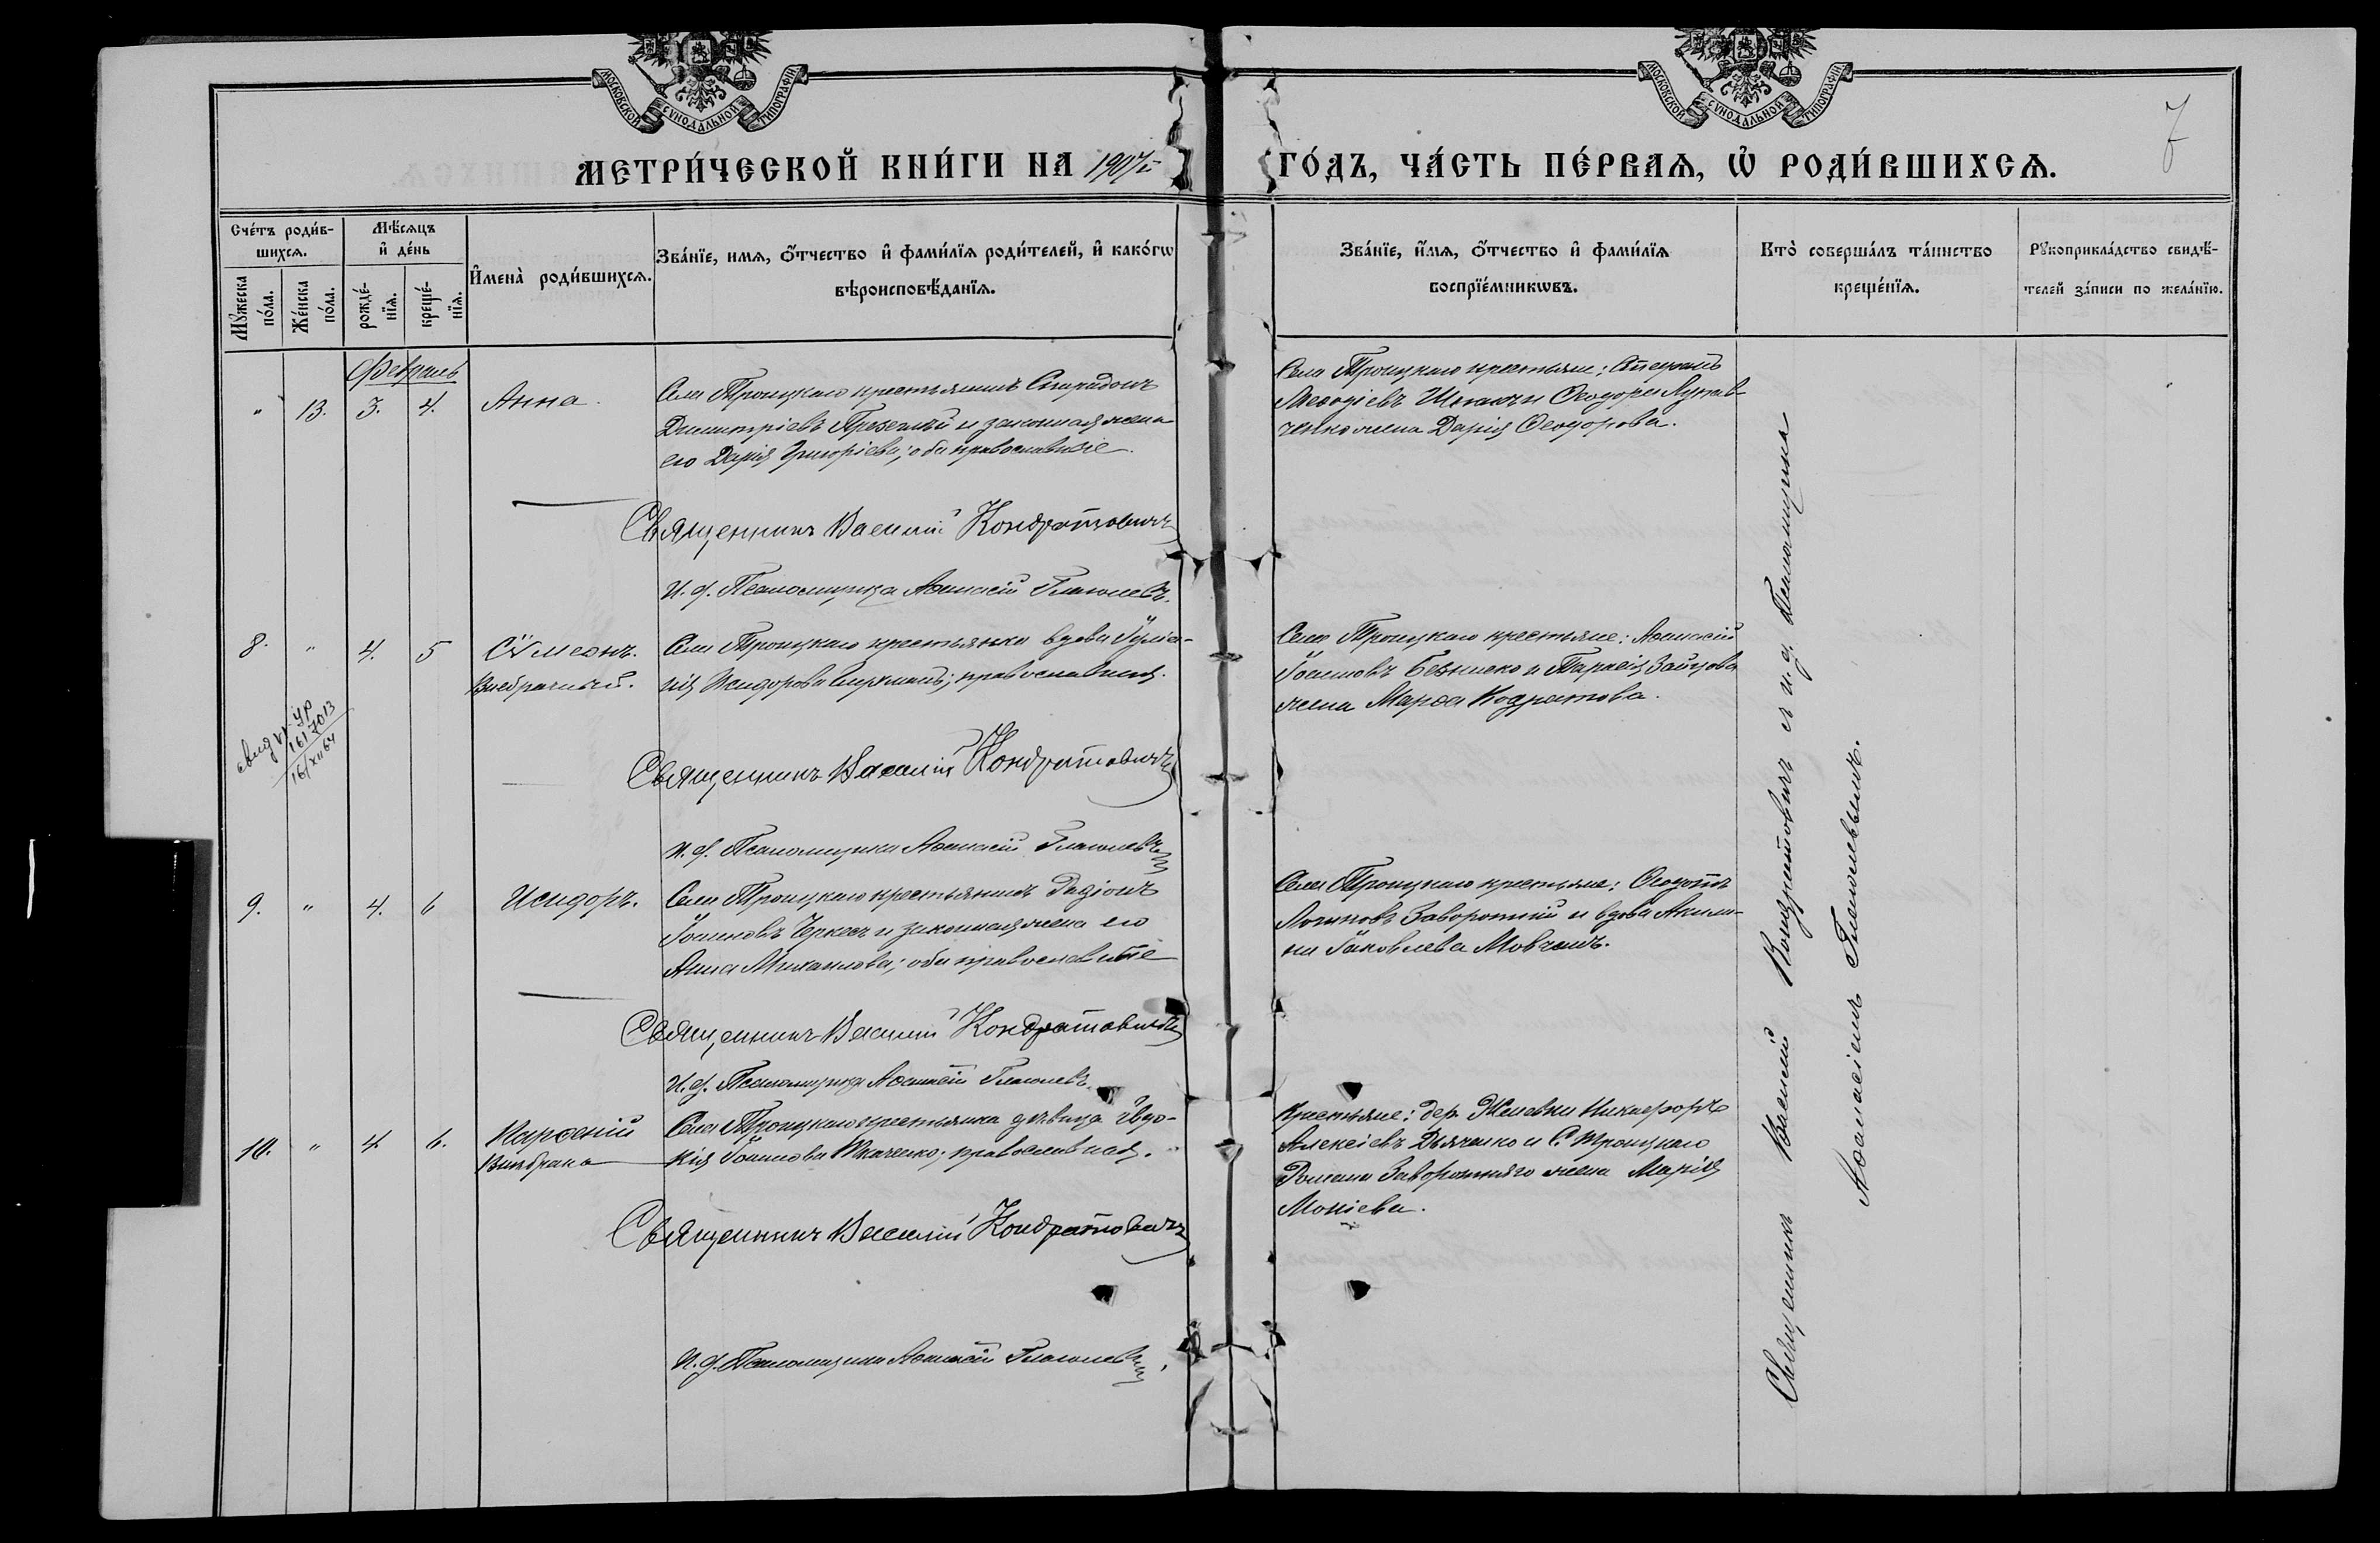 МОСКОВСКОЙ СУНОДАЛЬНОЙ ТИПОГРАФІИ
МОСКОВСКОЙ СУНОДАЛЬНОЙ ТИПОГРАФІИ
7
МЕТРИ́ЧЕСКОЙ КНИ́ГИ НА 1907й
ГО́ДЪ, ЧА́СТЬ ПЕ́РВАѦ, Ѡ҆ РОДИ́ВШИХСѦ.
Сче́тъ роди́в-
шихсѧ.
Мꙋжеска
по́ла.
Же́нска
по́ла.
Мѣ́сѧцъ
и҆ де́нь
рожде́-
нїѧ.
креще́-
нїѧ.
И҆мена̀ роди́вшихсѧ.
Зва́нїе, имѧ, ѻ҆́тчество и҆ фами́лїѧ роди́телей, и҆ како́гѡ
вѣроисповѣ́данїѧ.
Зва́нїе, и҆́мѧ, ѻ҆́тчество и҆ фами́лїѧ
воспрїе́мникѡвъ.
Кто̀ соверша́лъ та́инство
креще́нїѧ.
Рꙋкоприкла́дство свидѣ́-
телей за́писи по жела́нїю.
Февраль
" 13. 3. 4. Анна.
Села Троицкаго крестьянинъ Спиридонъ
Димитріевъ и законная жена
его Дарія Григоріева; оба православные
Села Троицкаго крестьяне:
Меѳодіевъ и Ѳеодора
жена Дарія Ѳеодорова.
Священникъ Василій Кондратовичъ
И. д. Псаломщика Аѳанасій Глаголевъ.
8. " 4. 5 Сѵмеонъ.
Внебрачный.
Села Троицкаго крестьянка вдова Іуліа-
нія Исидорова; православная.
Села Троицкаго крестьяне: Аѳанасій
Іоанновъ и Тарасія Зайцова
жена Марѳа Кодратова.
свид
УР
1617013
16/XII 64
Священникъ Василій Кондратовичъ
И. д. Псаломщика Аѳанасій Глаголевъ
9. " 4. 6 Исидоръ.
Села Троицкаго крестьянинъ Радіонъ
Іоанновъ Черкесъ и законная жена его
Анна Михаилова; оба православные
Села Троицкаго крестьяне: Ѳеодотъ
Логиновъ Заворотній и вдова Акили-
на Іаковлева Мовчанъ.
Священникъ Василій Кондратовичъ
И. д. Псаломщика Аѳанасій Глаголевъ.
10. " 4 6. Парѳеній
Внѣбрачно
Села Троицкаго крестьянка дѣвица Евдо-
кія Іоаннова Ткаченко; православная.
Крестьяне: дер. Никифоръ
Алексіевъ Дьяченко и С. Троицкаго
Романа Заворотняго жена Марія
Мокіева.
Священникъ Василій Кондратовичъ
И. д. Псаломщика Аѳанасій Глаголевъ
Священникъ Василій Кондратовичъ и и. д. Псаломщика
Аѳанасіемъ Глаголевымъ.